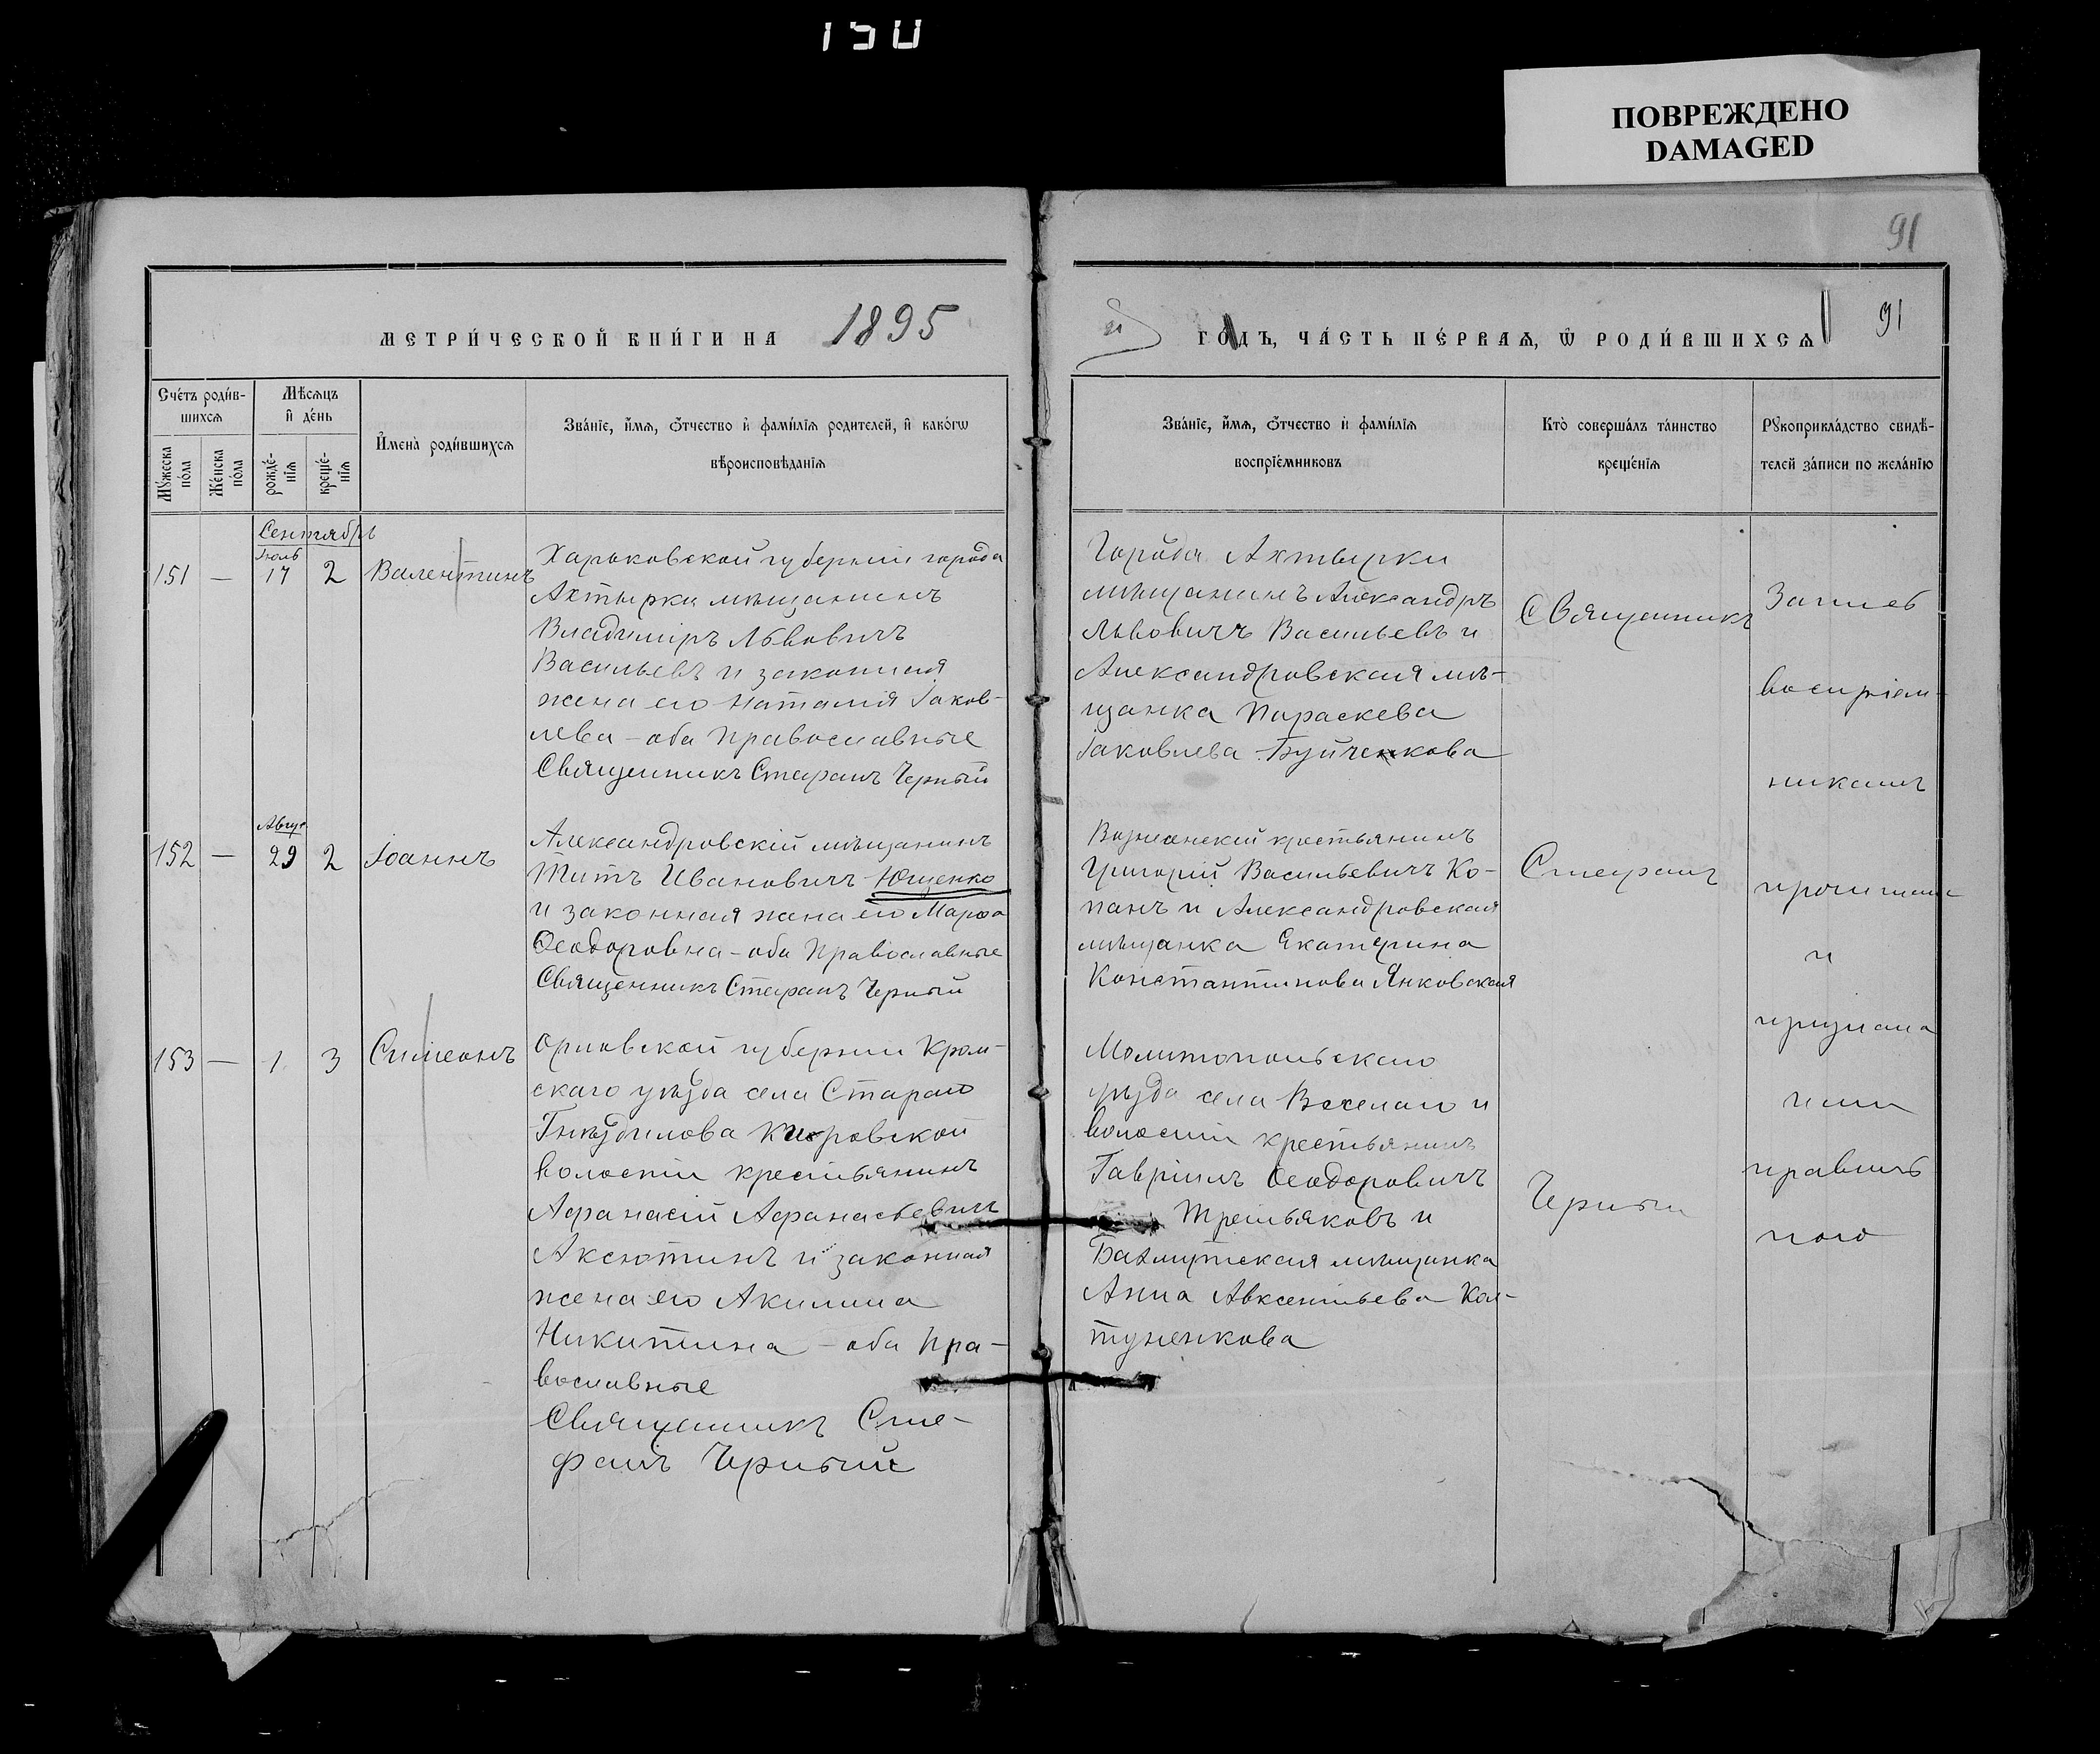 150
ПОВРЕЖДЕНО
DAMAGED
91
МЕТРИ́ЧЕСКОЙ КНИ́ГИ НА 1895
ГОДЪ, ЧА́СТЬ ПЕ́РВАѦ, Ѡ҆ РОДИ́ВШИХСѦ
91
Сче́тъ роди́в-
шихсѧ
Мꙋ́жеска по́ла
Же́нска по́ла
Мѣ́сѧцъ
и҆ де́нь
рожде́-
нїѧ
креще́-
нїѧ
И҆мена̀ роди́вшихсѧ
Зва́нїе, и҆́мѧ, ѻ҆́тчество и҆ фами́лїѧ родителей, и҆ како́гѡ
вѣроисповѣ́данїѧ
Зва́нїе, и҆́мѧ, ѻ҆́тчество и҆ фами́лїѧ
воспрїе́мниковъ
Кто̀ соверша́лъ та́инство
креще́нїѧ
Рꙋкоприкла́дство свидѣ́-
телей за́писи по жела́нїю
Сентябрь
Іюль
151 — 17 2 Валентинъ
Харьковской губерніи города
Ахтырки мѣщанинъ
Владиміръ Львовичъ
Васильевъ и законная
жена его Наталія Іаков-
лева - оба православные
Священникъ Стефанъ Черный
Города Ахтырки
мѣщанинъ Александръ
Львовичъ Васильевъ и
Александровская мѣ-
щанка Параскева
Іаковлева Буйченкова
Авгус.
152 — 29 2 Іоаннъ
Александровскій мѣщанинъ
Титъ Ивановичъ Ющенко
и законная жена его Марѳа
Ѳеодоровна - оба православные
Священникъ Стефанъ Черный
крестьянинъ
Григорій Васильевичъ Ко-
панъ и Александровская
мѣщанка Екатерина
Константинова Янковская
153 — 1 3 Симеонъ
Орловской губерніи Кром-
скаго уѣзда села Стараго
Гнѣздилова
волости крестьянинъ
Афанасій Афанасьевичъ
Аксютинъ и законная
жена его Акилина
Никитина - оба пра-
вославные
Священникъ Сте-
фанъ Черный
Мелитопольскаго
уѣзда села Веселаго и
волости крестьянинъ
Гавріилъ Ѳеодоровичъ
Третьяковъ и
Бахмутская мѣщанка
Анна Авксентьева Кол-
туненкова
Священникъ
Стефанъ
Черный
Запись
воспріем-
никамъ
прочитана
и
признана
ими
правиль
ною